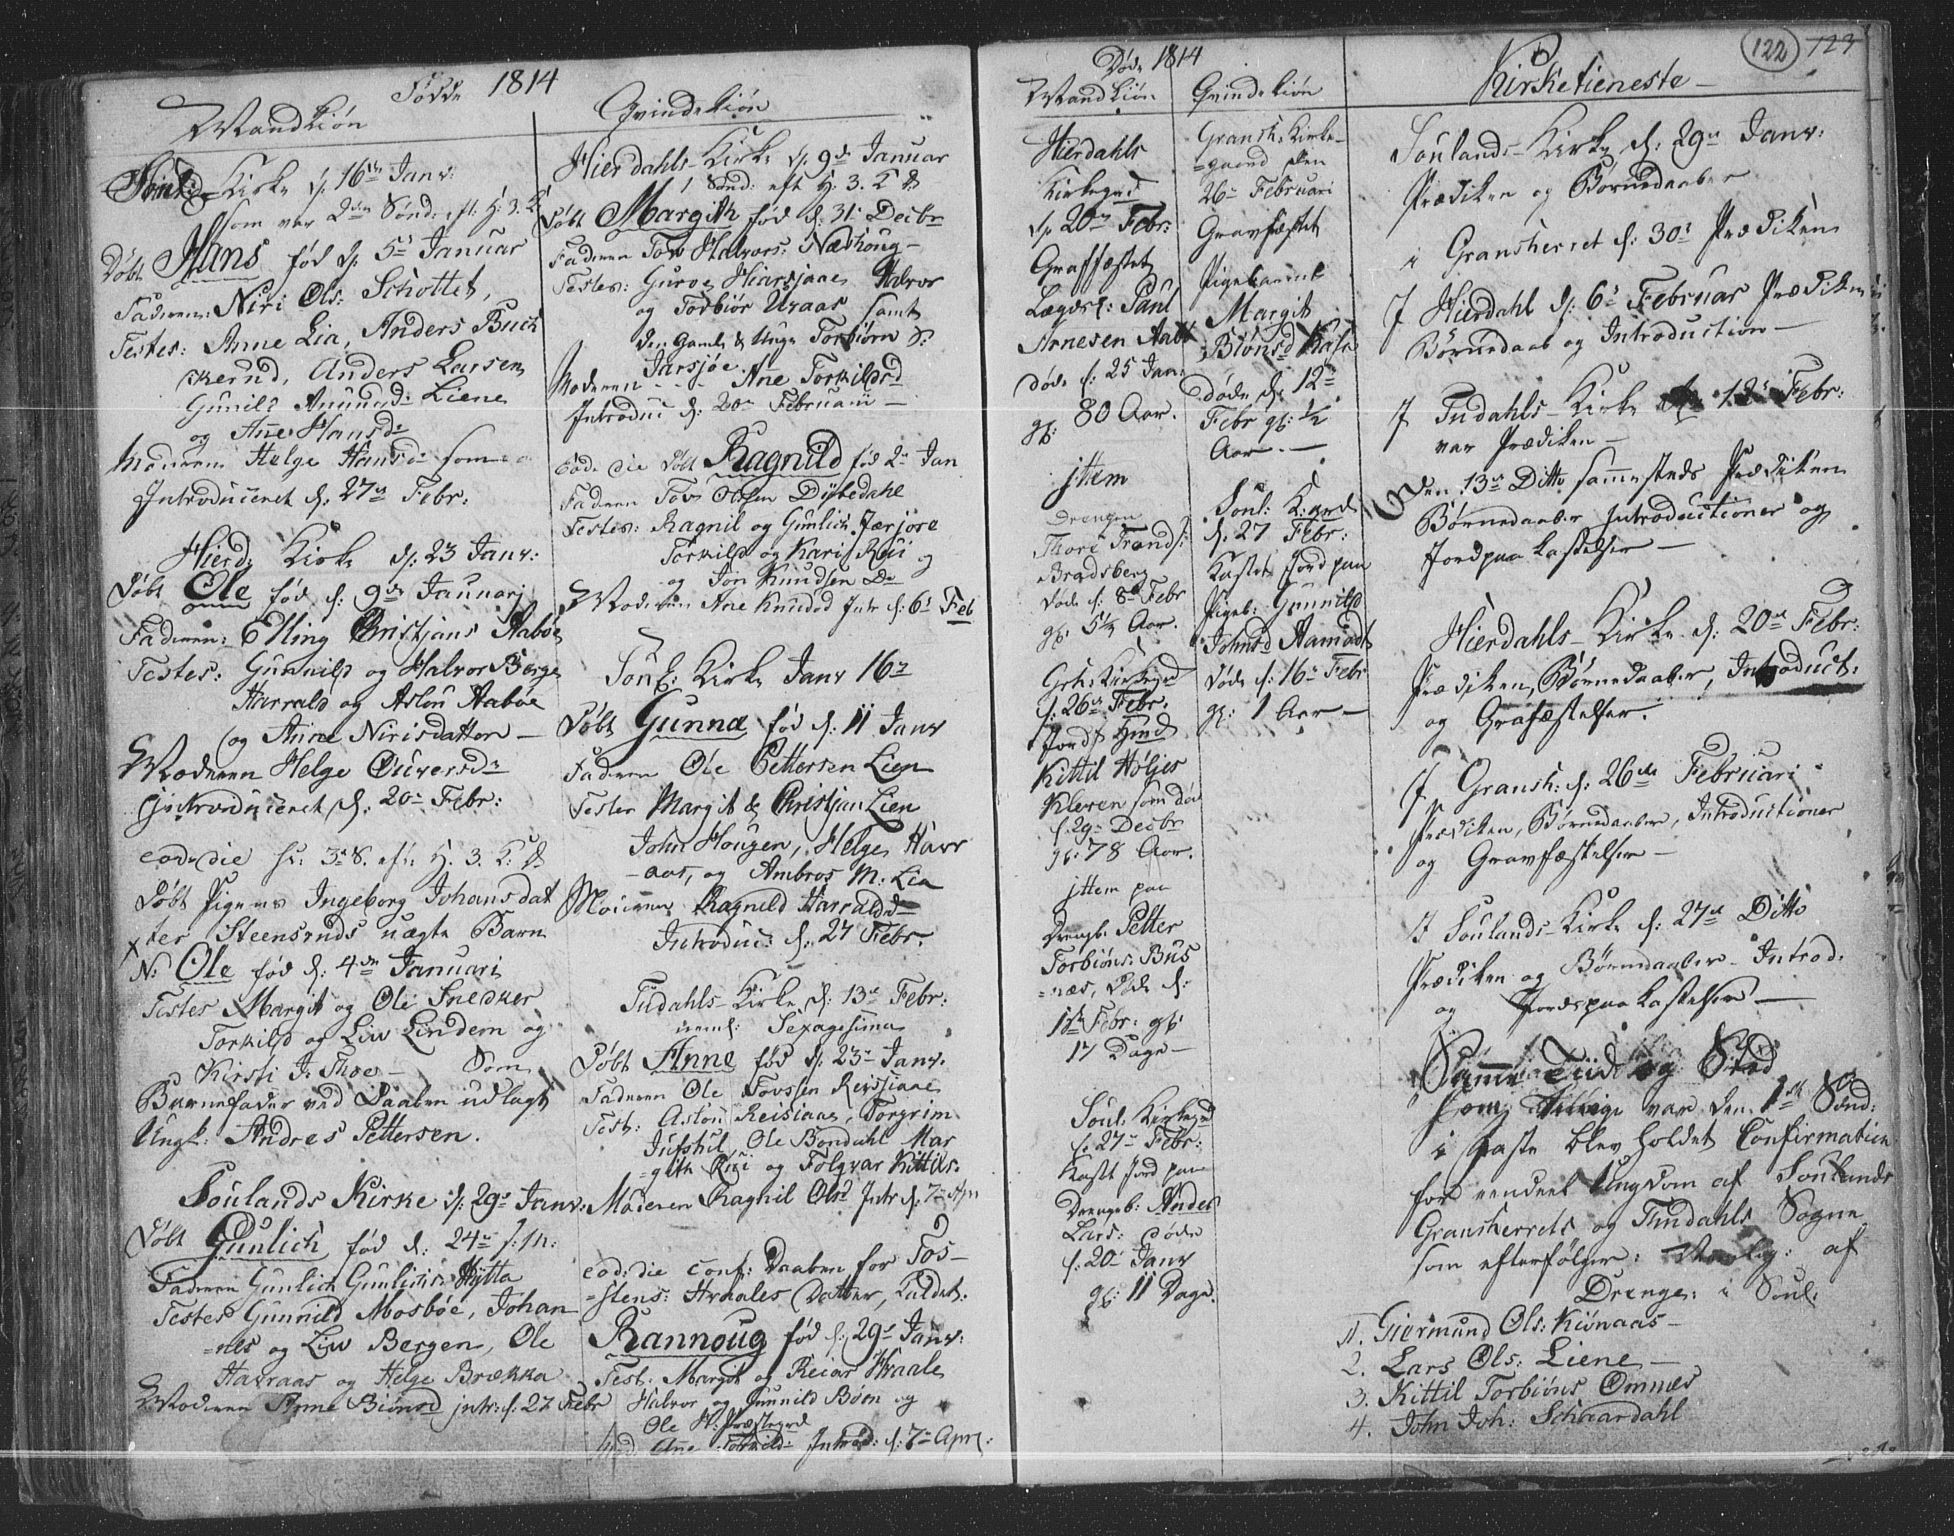 Födde 1814
Mandkiøn
Soul: Kirke d: 16de Janv:
som var 2den Sönd: eft: H: 3. K
Döbt Hans föd d: 5te Januar
Faderen: Niri Ols: Schottet,
Testes: Anne Lia, Anders Buch
Anders Larsen
Gunild Amund: Liene
og Ane Hansd:
Moderen Helge Hansd: som
Introduceret d: 27de Febr:
Hierd: Kirke d: 23 Janv:
Döbt Ole föd d: 9de Januarj
Faderen: Elling Christjans Aaboe
Testes: Gunnild og Halvor Berge
Harrald og Aslou Aaboe
og Anne Nirisdatter
Moderen Helge Oliversdr
Introduceret d: 20de Febr:
eode die
Döbt Pigens Ingeborg Johansdat
ter Steensruds uægte Barn
N: Ole föd d: 4de Januari
Testes Margit og Ole Snedker
Torkild og Liw Lindem og
Kirsti J: Thoe Som
Barnefader ved Daaben udlagt
Ungk: Andres Pettersen.
Soulands Kirke d: 29de Janv:
Döbt Gunlich föd d: 24de
Faderen Gunlich Gunlichs: Hytta
Testes Gunnild Mosböe, Johan
nes og Liw Bergen, Ole
Haraas og Helge Brækka
Moderen Anne Biönsd intr: d: 27 Febr
Qvindekiön
Hierdahls Kirke d: 9de Januar
1 Sönd: eft H. 3. K D
Döbt Margith föd d: 31te Decbr
Faderen Tov Halvors: Næshoug
Testes: Gurov Hiarsjaae Halvor
og Torbiör Uraas samt
den gamle & Unge Torbiörn
Jarsjöe.
Moderen Ane Torkildsd
Introduc d: 20de Februarii
Eode die Döbt Ragnild föd 2de Jan
Faderen Tov Olsen Dyrdahl
Testes: Ragnil og Gunlich Jærjore
Torkild og Karis Rui og
og Jon Knudsen Do
Moderen Ane Knudsd Intr d: 6te Feb
Soul: Kirke Janv 16de
Döbt Gunna föd d: 11 Janv
Faderen Ole Pettersen Lien
Testes Margit & Christjan Lien
John Hougen, Helge Harr
aas, og Ambros M: Lia
Moderen Ragnild Harraldsd
Introduc: d: 27 Febr.
Tudahls Kirke d: 13de Febr:
Sexagesima
Döbt Anne föd d: 23de Janv.
Faderen Ole Tovssen Reisjaae
Test: Aslou Reisiaae, Torgrim
Ole Bondahl Mar
gith Rui og Folqvar Kittils:
Moderen Ragnil Olsd Intr d: 7de Apr
eod: die conf: Daaben for Tos
stens: Hraales Datter, kaldet:
Rannoug föd d: 29de Janv:
Test: Margit og Reiar Hraale
Halvor og Gunnild Böen og
Ole H: Præstegrd
Mod: Ane Torkild: Introd: d: 7de Apr:
Döde 1814
Mandkiön
Hierdahls
Kirkegrd
d: 20de Febr:
Graffæstet
Lægdsl: Paul
Arnesen Aab
döde d: 25 Jan:
gl: 80 Aar.
ittem
Drengen
Thore Tronds:
Bradsberg
döde d: 8de Febr
gl: 5½ Aar.
Grh: Kirkegrd
d: 26de Febr.
Kittil Höljes
Kleven som döde
d: 29de Decbr
gl: 78 Aar.
ittem paa
Drengb: Petter
Torbiöns: Bus
næs, Döde d:
1ste Febr: gl:
17 Dage
Soul: Kirkegrd
d: 27de Febr:
kast Jord paa
Drengeb: Andes
Lars: döde
d: 20de Janv
gl: 11 Dage.
Qvindekiön
Gransh: Kirke
gaard den
26de Februari
Gravfæstet
Pigebarnet
Margit
Biönsd Kasa
döde d: 12te
Febr gl: ½
Aar.
Soul: K:gard
d: 27 Febr:
kastet Jord paa
Pigeb: Gunnild
Johnsd Aamodt
döde d: 16de Febr
gl: 1 Aar
122 123
Kirketieneste
Soulands Kirke d: 29de Janv:
Prædiken og Börnedaaber
i Gransherret d: 30te Prædiken
I Hierdahl d: 6te Februar Prædiken
Börnedaab og Introduction
I Tudahls Kirke 12te Febr:
var Prædiken
Den 13de Ditto sammesteds Prædiken
Börnedaaber Introductioner og
Jordpaakastelser
Hierdahls Kirke d: 20de Febr:
Prædiken, Börnedaaber, Introduct:
og Grafæstelser.
I Gransh: d: 26de Februari
Prædiken, Börnedaaber, Introductioner
og Gravfæstelser
I Soulands Kirke d: 27de Ditto
Prædiken og Börnedaaber Introd:
og Jordpaakastelser
Samme Tiid og Sted
som tillige var den 1ste Sönd:
i Faste blev holdet Confirmation
for eendeel Ungdom af Soulands
Gransherrets og Tudahls Sogne
som efterfölger: Nemlig: af
Drenge: i Soul:
1. Giermund Ols: Kiönaas
2. Lars Ols: Liene
3. Kittil Torbiöns Omnæs
4. John Joh: Schaardahl